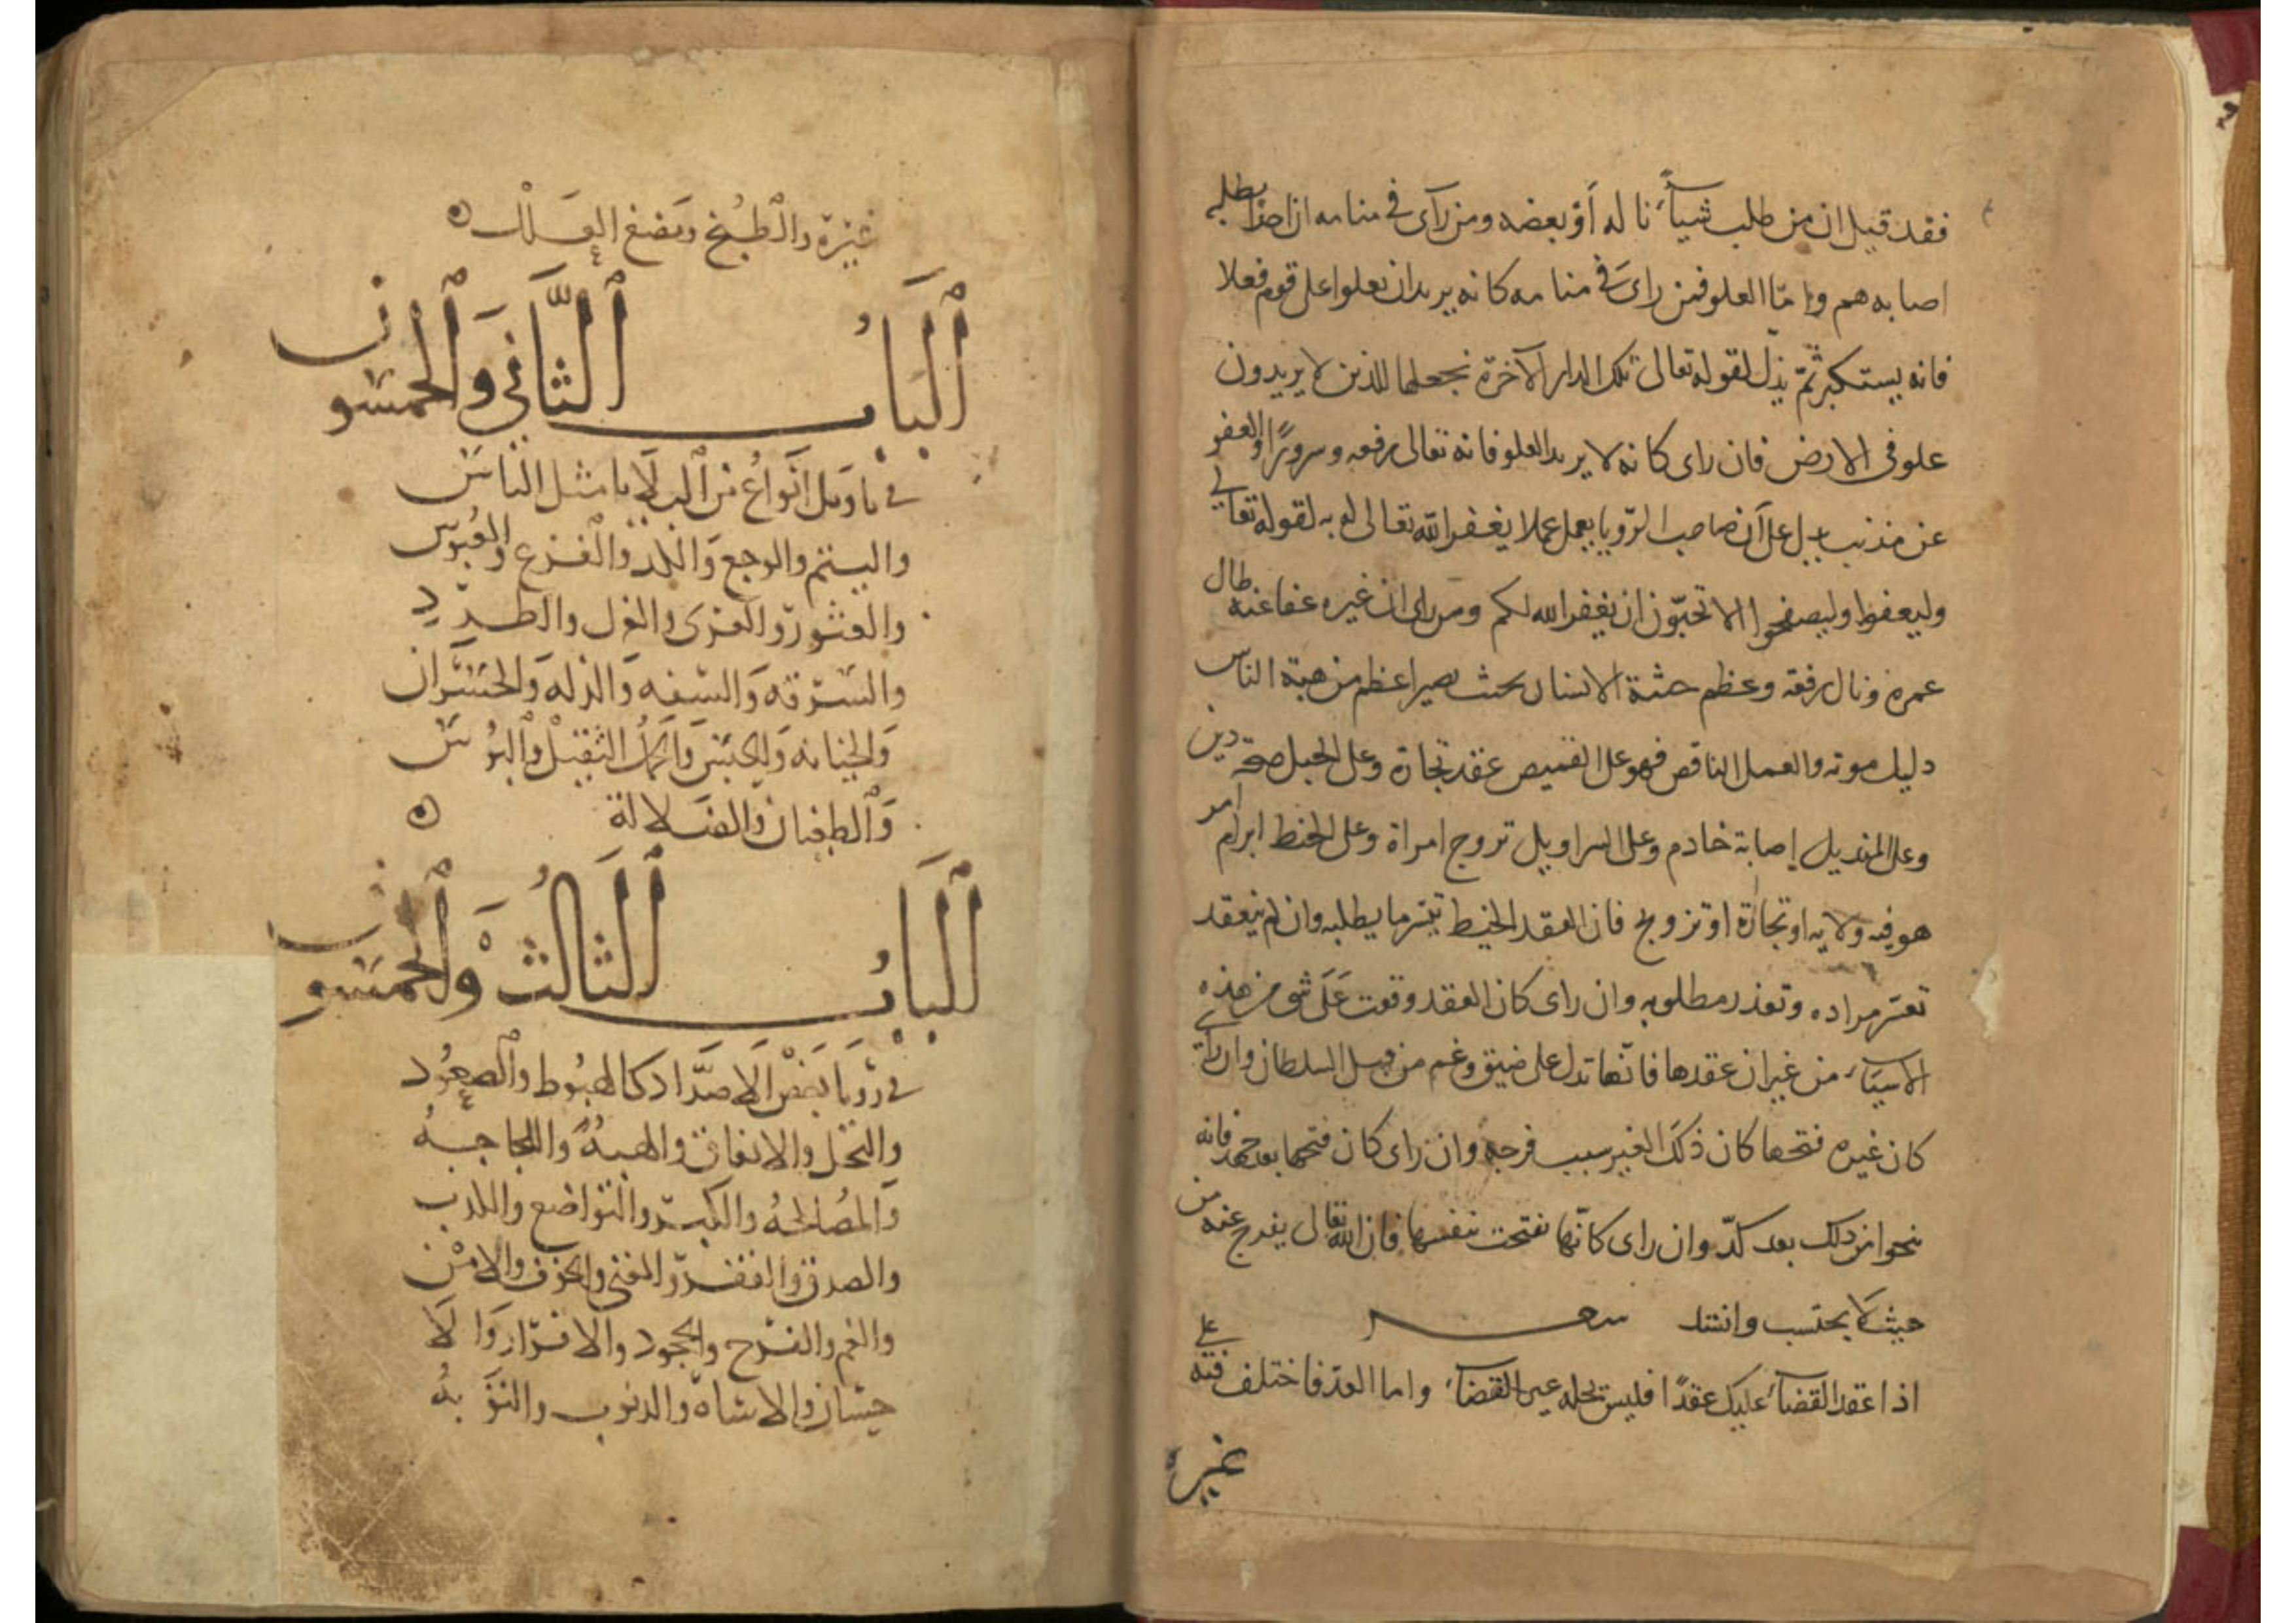 فقد قيل ان من طلب شيأ ناله أو بعضه ومن رآى في منامه ان احدا يطلبه
اصابه هم واما العلو فمن راى في منامه كانه يريد ان يعلوا على قوم فعلا
فانه يستكبر ثم يذل لقوله تعالى تلك الدار الآخرة نجعلها للذين لا يريدون
علو في الارض فان راى كانه لا يريد العلو فانه تعالى رفعه وسرورا والعفو
عن مذنب يدل على أن صاحب الرويا يعمل عملا يغفر الله تعالى له به لقوله تعالى
وليعفوا وليصفحوا الا تحبون ان يغفر الله لكم ومن راى ان غيره عفا عنه طال
عمره ونال رفعه وعظم جثة الانسان بحيث يصير اعظم من هية الناس
دليل موته والعمل الناقص فهو على القميص عقد تجارة وعلى الحبل صحة دين
وعلى المنديل إصابة خادم وعلى السراويل تزوج امراة وعلى الخيط ابرام امر
هو فيه ولايه او تجارة او تزويج فان انعقد الخيط تيسر ما يطلبه وان لم ينعقد
تعسر مراده وتعذر مطلوبه وان راى كان العقد وقعت على شى من هذه
الاشياء من غير ان عقدها فانها تدل على ضيق وغم من قبل السلطان وان راى
كان غيره فتحها كان ذلك الغير سبب فرجه وان راى كان فتحها بعد جهد فانه
ينجوا من ذلك بعد كد وان راى كانها نفتحت بنفسها فان الله تعالى يفرج عنه من
حيث لا يحتسب وانشد شعر
اذا عقد القضاء عليك عقدا فليس يحله غير القضاء واما العد فاختلف فيه على
غيره
غيره والطبخ ومضغ العلك
الباب الثاني والخمسون
في تاويل انواع من البلايا مثل الناس
واليتم والوجع والفزع والعبوس
والعثور والعزى والغل والطرد
والسرقه والسفه والذله والخسران
والخيانه والحبس والحمل الثقيل والبوس
والطغيان والضلالة
الباب الثالث والخمسون
في رويا بعض الاضداد كالهبوط والصعود
والبخل والانفاق والهبة
والمصالحه والكبر والتواضع والكذب
والصدق والفقر والغنى والخوف والامن
والغم والفرح والجحود والاقرار والا
حسان والاساه والذنوب والتوبه